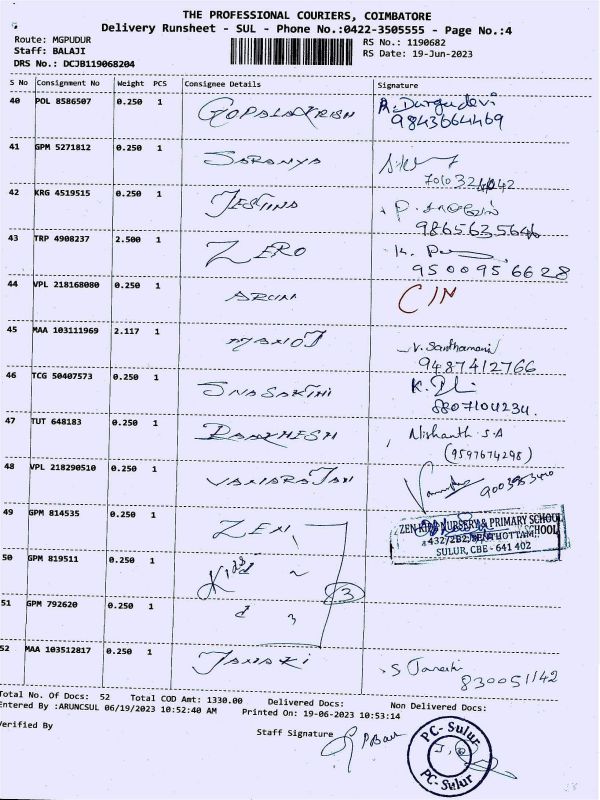 THE PROFESSIONAL COURIERS, COIMBATORE
Delivery Runsheet - SUL - Phone No.:0422-3505555 - Page No.:4
Route: MGPUDUR
RS No.: 1190682
Staff: BALAJI
RS Date: 19-Jun-2023
DRS No.: DCJB119068204
S No Consignment No Weight PCS Consignee Details Signature
40 POL 8586507 0.250 1 GOPALAKRISH R. Durgadevi
9843664469
41 GPM 5271812 0.250 1 SARANYA
42 KRG 4519515 0.250 1 JESTINA
9865635646
43 TRP 4908237 2.500 1 ZERO
9500956628
44 VPL 218168080 0.250 1 ARUN C/N
45 MAA 103111969 2.117 1 MANOJ V. Santhamani
9487412766
46 TCG 50407573 0.250 1 K.
8807104234.
47 TUT 648183 0.250 1 Nishanth S.A
(9597674298)
48 VPL 218290510 0.250 1 VANARAJAN
49 GPM 814535 0.250 1 ZEN
ZEN KIDZ NURSERY & PRIMARY SCHOOL
432/2B2, SCHOOL
SULUR, CBE - 641 402
50 GPM 819511 0.250 1 Kids
51 GPM 792620 0.250 1 3
52 MAA 103512817 0.250 1 JANAKI S Janaki
830051142
Total No. Of Docs: 52 Total COD Amt: 1330.00 Delivered Docs: Non Delivered Docs:
Entered By :ARUNCSUL 06/19/2023 10:52:40 AM Printed On: 19-06-2023 10:53:14
Verified By
Staff Signature
PC-Sulur
PC-Sulur